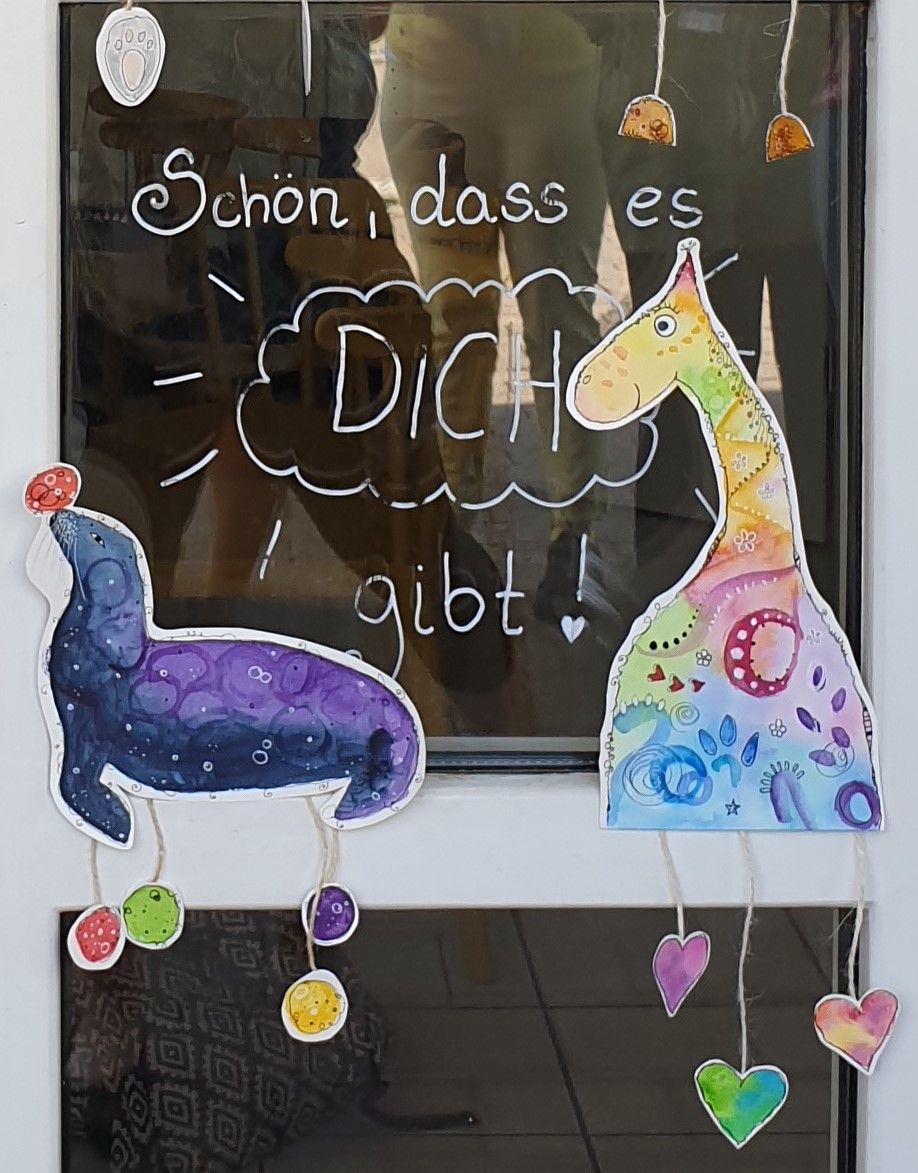 Schön, dass es
DICH
gibt!